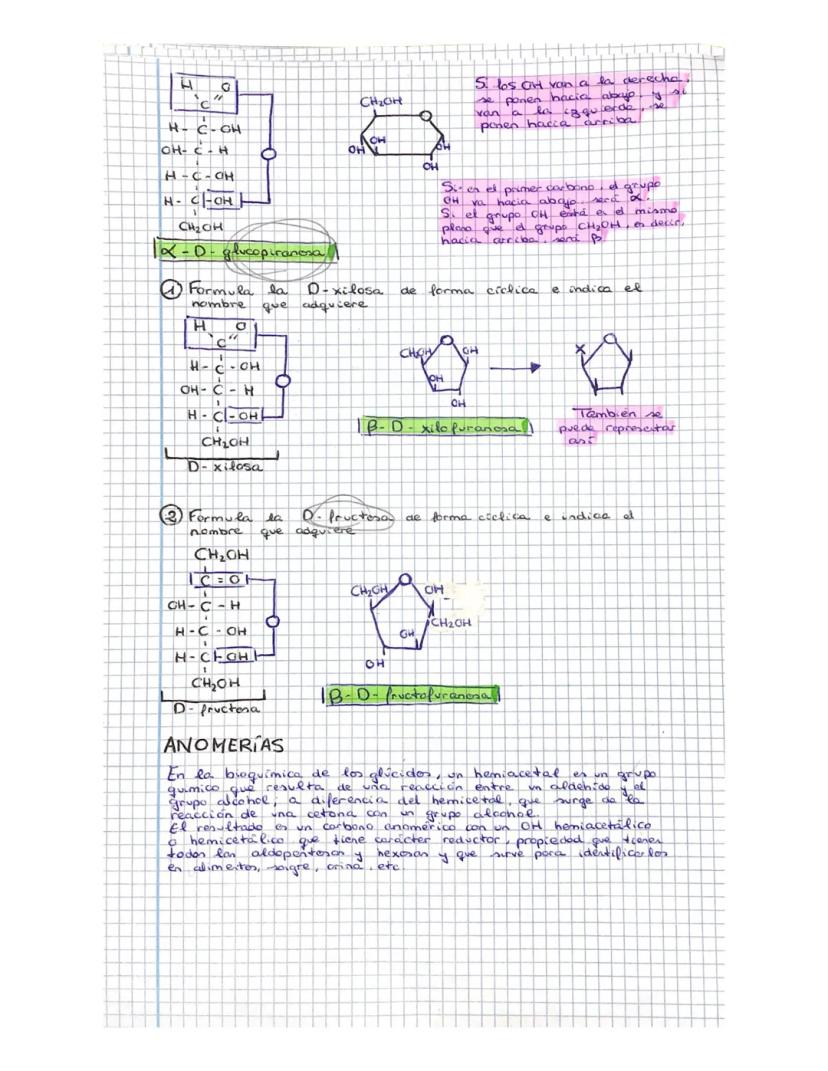 H O
C
H - C - OH
OH - C - H
H - C - OH
H - C - OH
CH₂OH
α - D - glucopiranosa
CH₂OH
O
OH
OH
OH
OH
Si los OH van a la derecha,
se ponen hacia abajo, y si
van a la izquierda, se
ponen hacia arriba
Si en el primer carbono, el grupo
OH va hacia abajo, será α.
Si el grupo OH está en el mismo
plano que el grupo CH₂OH, es decir,
hacia arriba, será β.
① Formula la D-xilosa de forma cíclica e indica el
nombre que adquiere
H O
C
H - C - OH
OH - C - H
H - C - OH
CH₂OH
D-xilosa
O
CH₂OH OH
OH
OH
β - D - xilofuranosa
O
X
También se
puede representar
así
② Formula la D-fructosa de forma cíclica e indica el
nombre que adquiere
CH₂OH
C = O
OH - C - H
H - C - OH
H - C - OH
CH₂OH
D-fructosa
O
CH₂OH OH
CH₂OH
OH
OH
β - D - fructofuranosa
ANOMERÍAS
En la bioquímica de los glúcidos, un hemiacetal es un grupo
químico que resulta de una reacción entre un aldehído y el
grupo alcohol; a diferencia del hemicetal, que surge de la
reacción de una cetona con un grupo alcohol.
El resultado es un carbono anomérico con un OH hemiacetálico
o hemicetálico que tiene carácter reductor, propiedad que tienen
todas las aldopentosas y hexosas y que sirve para identificarlos
en alimentos, sangre, orina, etc.